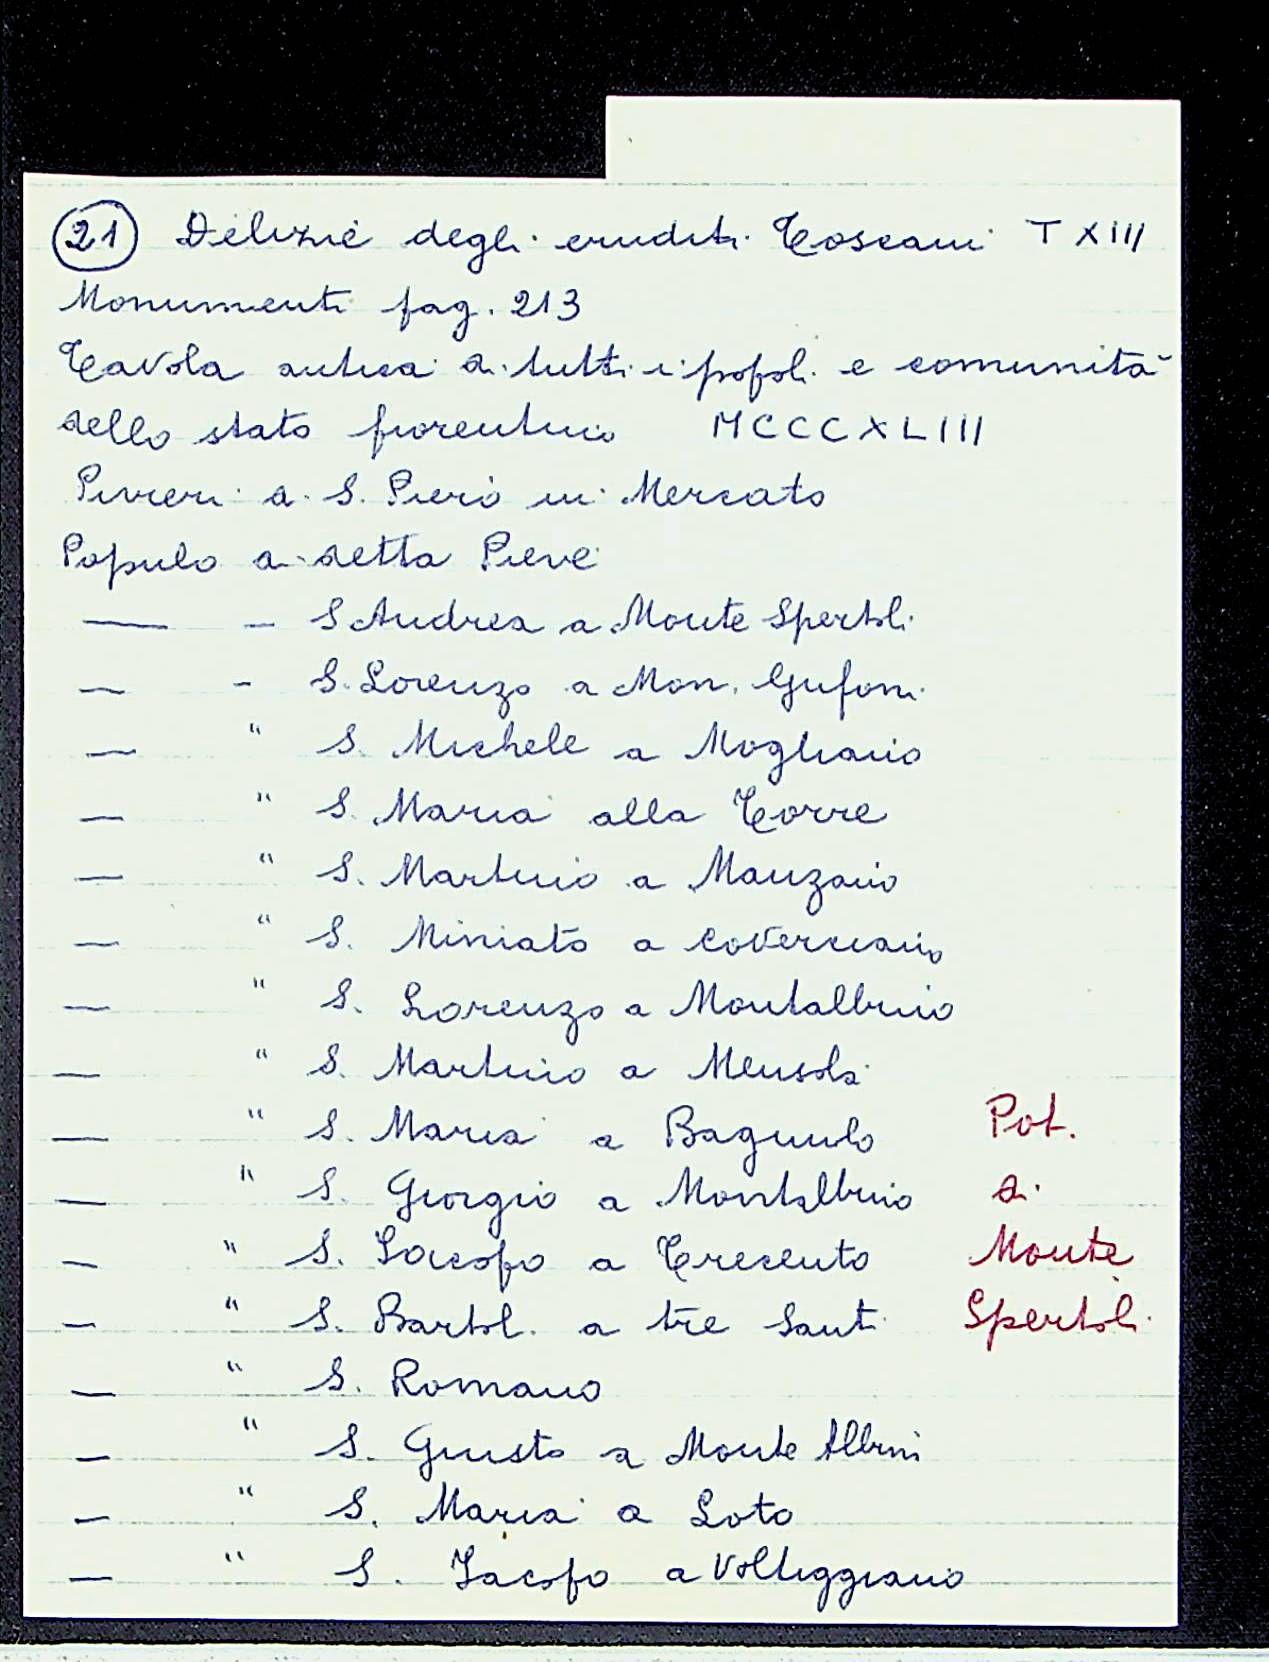 21 Delizie degli eruditi Toscani T XIII
Monumenti pag. 213
Tavola antica di tutti i popoli e comunità
dello stato fiorentino MCCCXLIII
Pivieri di S. Piero in Mercato
Populo di detta Pieve
— – S Andrea a Monte Spertoli
— – S. Lorenzo a Mon. Gufoni
— " S. Michele a Mogliano
— " S. Maria alla Torre
— " S. Martino a Manzano
— " S. Miniato a Coverciano
— " S. Lorenzo a Montalbino
— " S. Martino a Mensola
— " S. Maria a Bagnuolo Pot.
— " S. Giorgio a Montalbino di
— " S. Iacopo a Trecento Monte
— " S. Bartol. a tre Santi Spertoli
— " S. Romano
— " S. Giusto a Monte Albini
— " S. Maria a Loto
— " S. Iacopo a Volteggiano